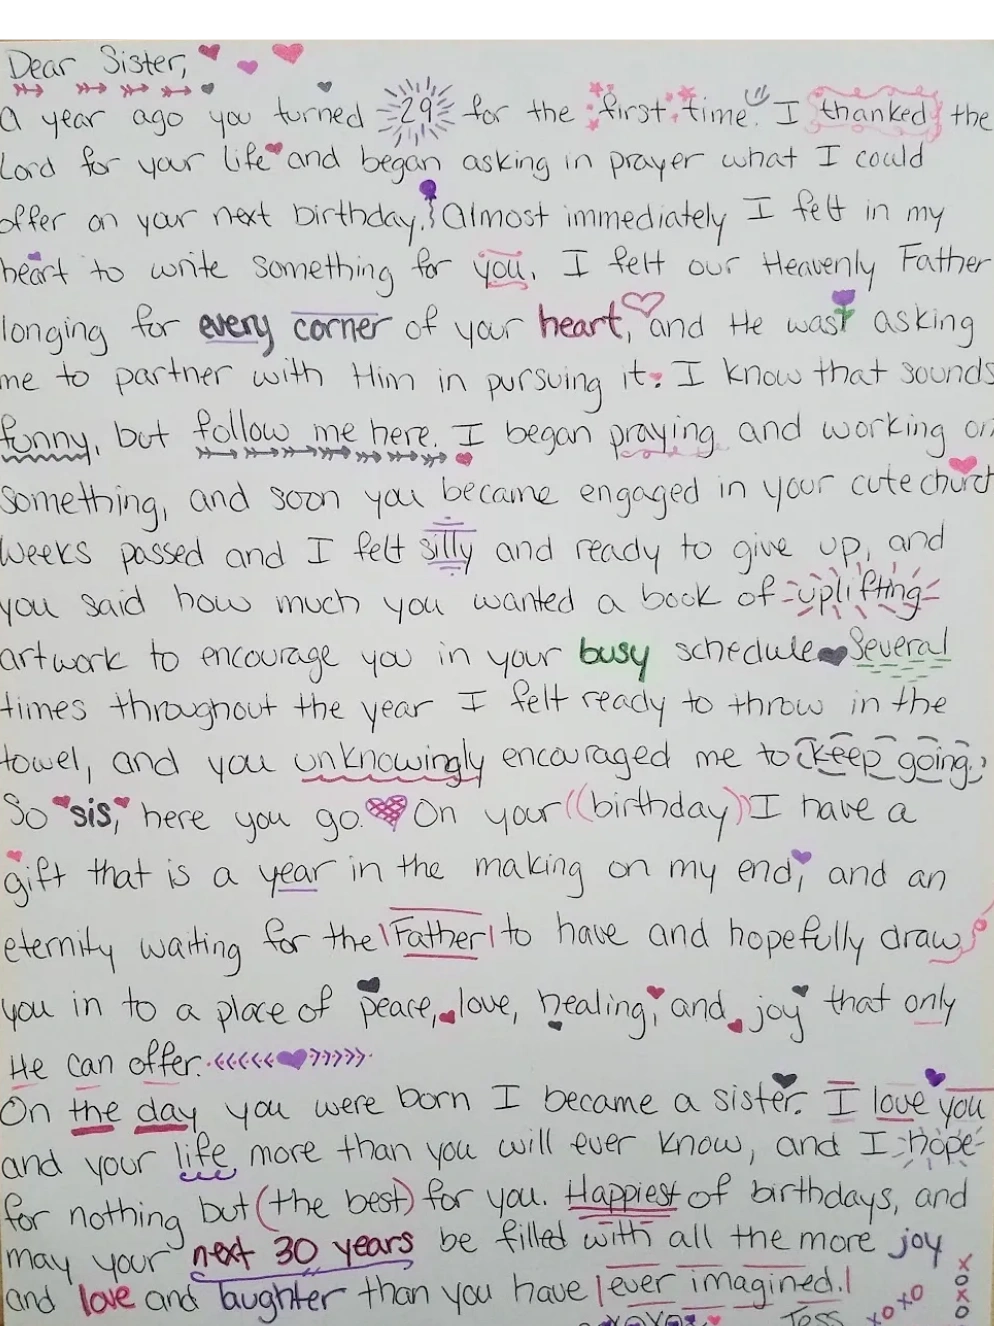 Dear Sister,
A year ago you turned 29 for the first time. I thanked the
Lord for your life and began asking in prayer what I could
offer on your next birthday. Almost immediately I felt in my
heart to write something for you. I felt our Heavenly Father
longing for every corner of your heart, and He was asking
me to partner with Him in pursuing it. I know that sounds
funny, but follow me here. I began praying and working on
something, and soon you became engaged in your cute church
Weeks passed and I felt silly and ready to give up, and
you said how much you wanted a book of uplifting
artwork to encourage you in your busy schedule Several
times throughout the year I felt ready to throw in the
towel, and you unknowingly encouraged me to keep going.
So "sis," here you go. On your (birthday) I have a
gift that is a year in the making on my end, and an
eternity waiting for the Father to have and hopefully draw
you in to a place of peace, love, healing, and joy that only
He can offer. <<<<< >>>>>
On the day you were born I became a sister. I love you
and your life more than you will ever know, and I hope
for nothing but (the best) for you. Happiest of birthdays, and
may your next 30 years be filled with all the more joy
and love and laughter than you have ever imagined.
XOXO
XOXO
XOXO Tess